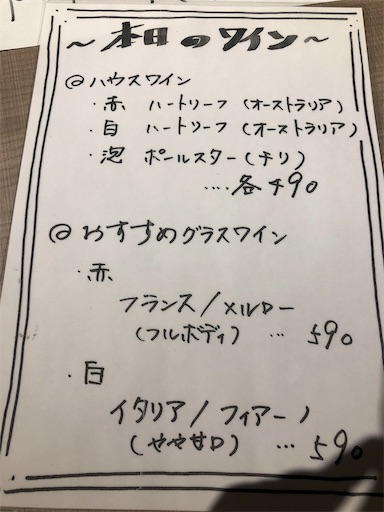 ～本日のワイン～
◎ハウスワイン
・赤 ハートリーフ(オーストラリア)
・白 ハートリーフ(オーストラリア)
・泡 ポールスター(チリ)
‥‥各490
◎おすすめグラスワイン
・赤
フランス/メルロー
(フルボディ) … 590
・白
イタリア/フィアーノ
(やや甘口) … 590